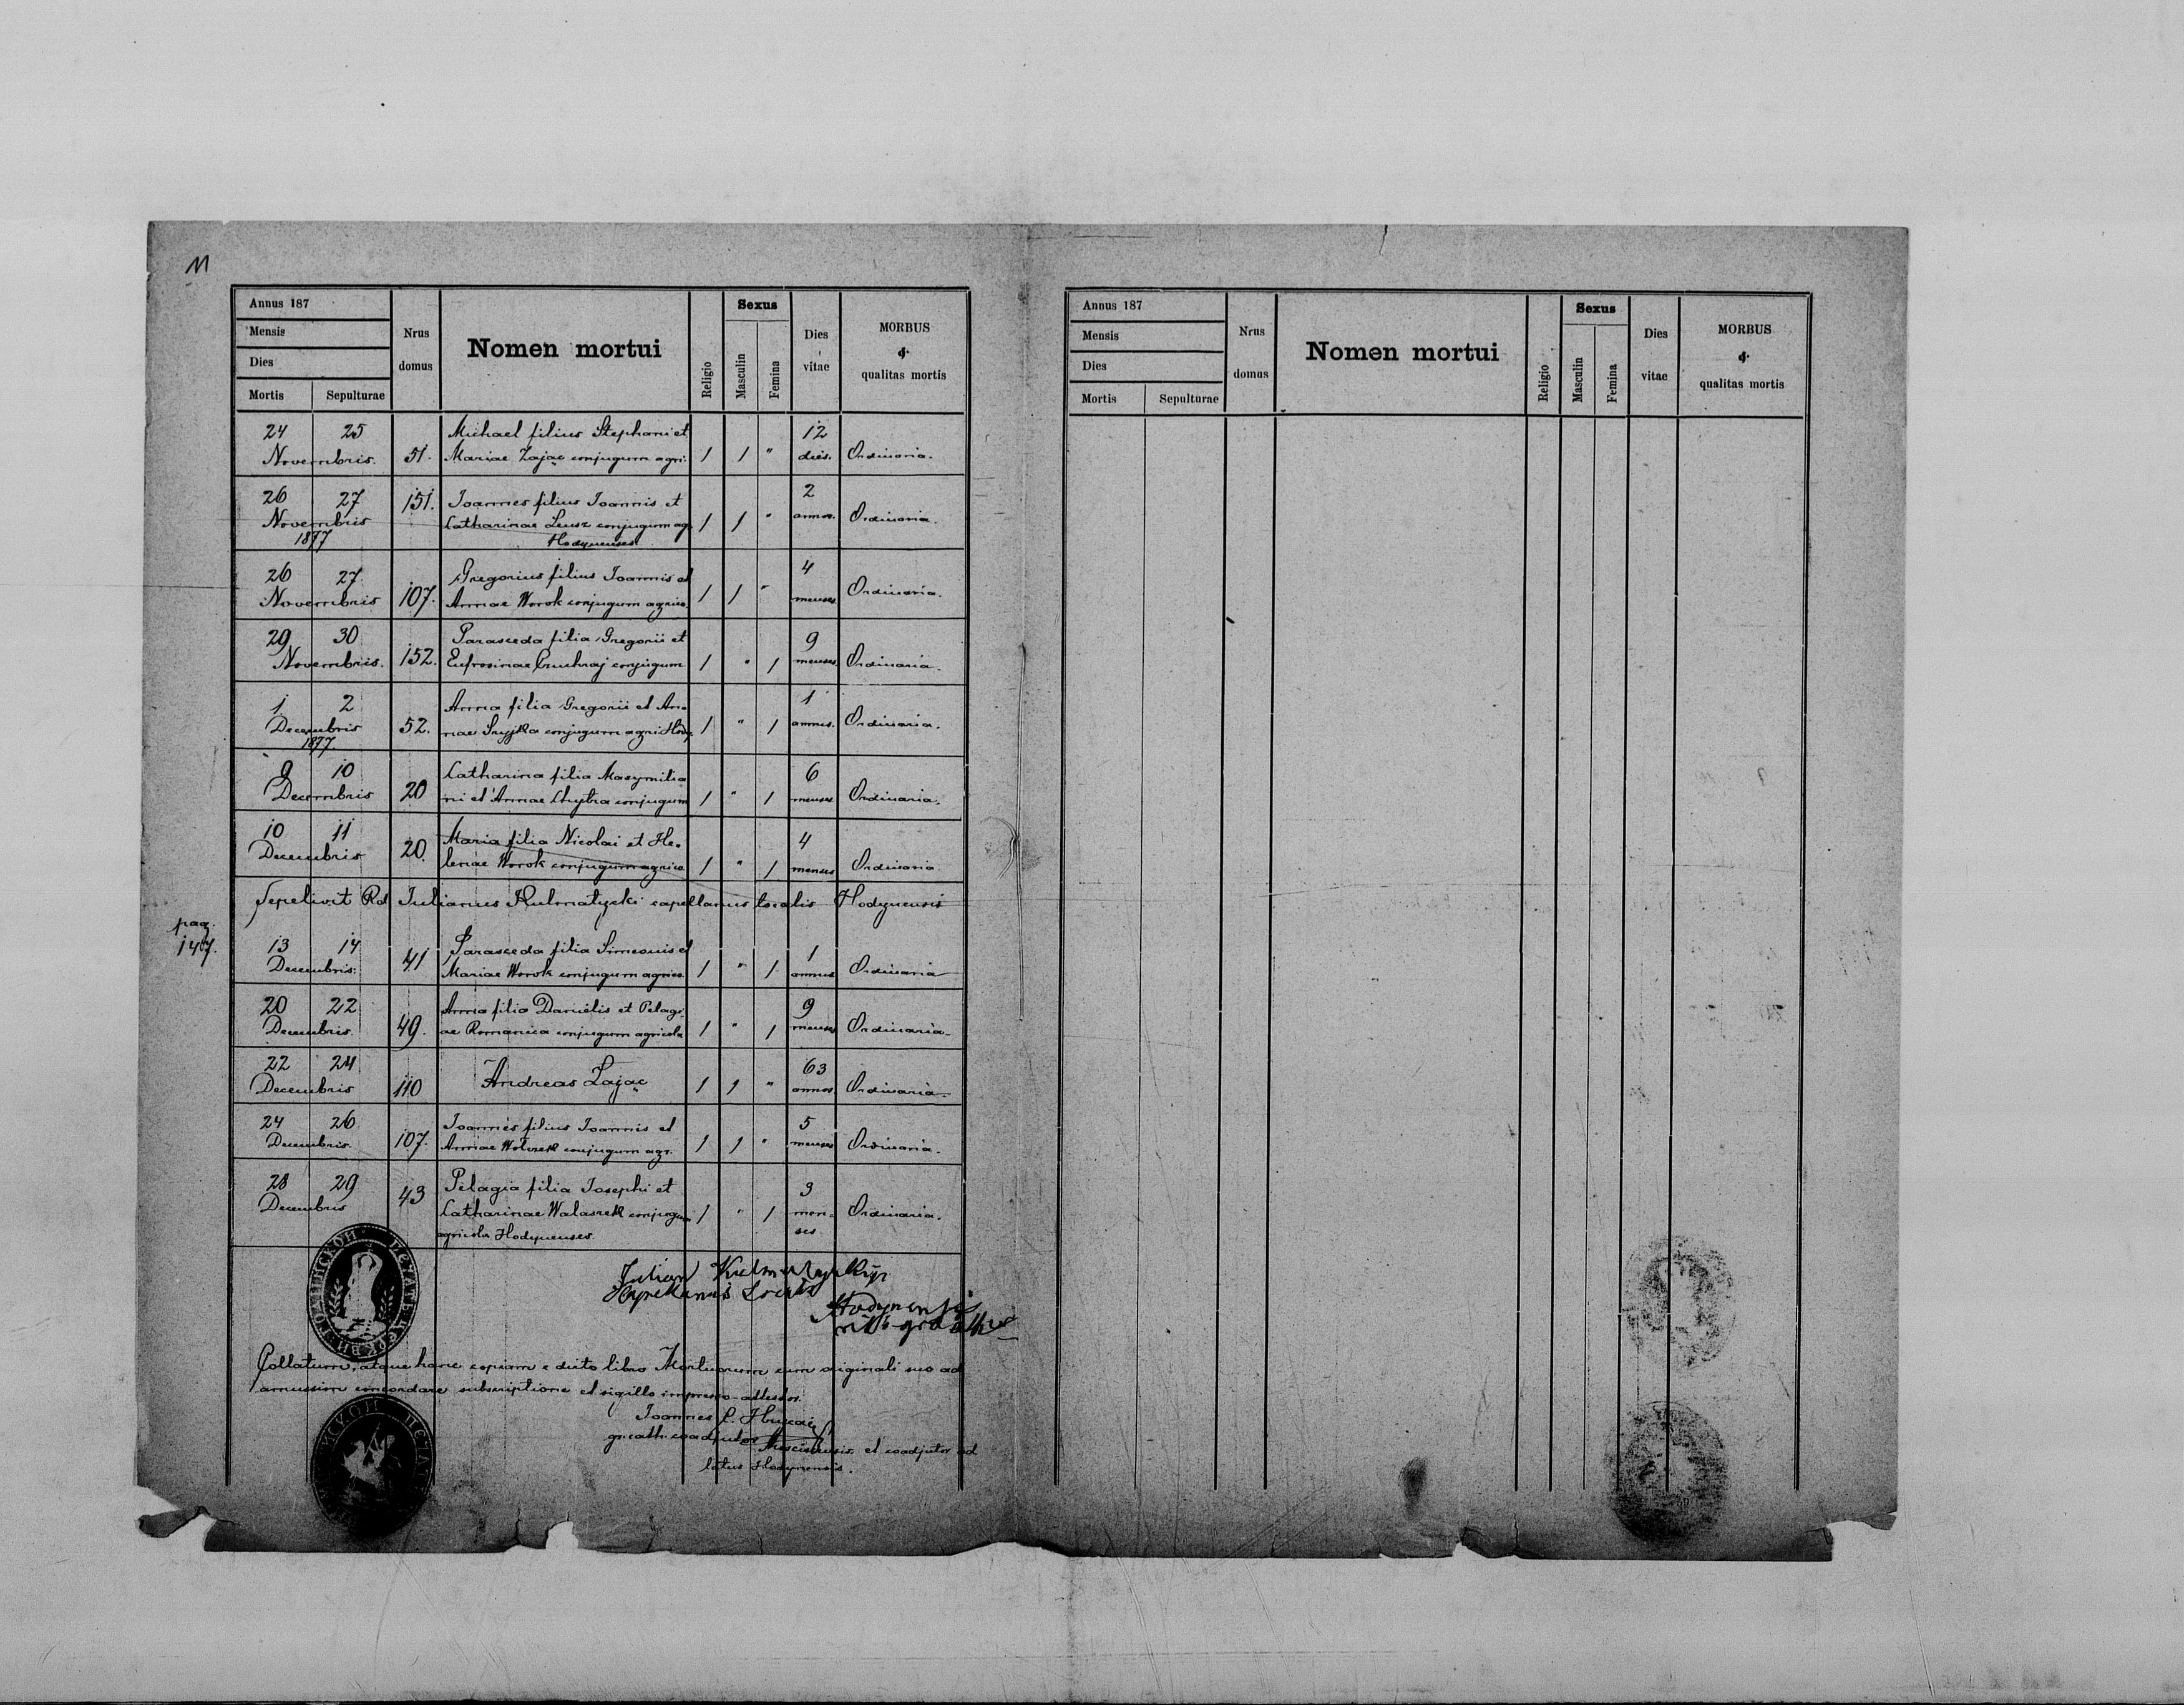 11
Annus 187
Mensis
Dies
Mortis Sepulturae
Nrus domus
Nomen mortui
Religio
Sexus
Masculin
Femina
Dies vitae
MORBUS & qualitas mortis
24 25 Michael filius Stephani et 12
Novembris. 51. Mariae Zając conjugum agri. 1 1 " dies. Ordinaria.
26 27 151. Joannes filius Joannis et 2
Novembris Catharinae conjugum ag. 1 1 " annos. Ordinaria.
1877 Hodynenses
26 27 Gregorius filius Joannis et 4
Novembris 107. Annae Worok conjugum agrico. 1 1 " menses Ordinaria.
29 30 Parasceda filia Gregorii et 9
Novembris. 152. Eufrosinae conjugum 1 " 1 menses Ordinaria.
1 2 Anna filia Gregorii et An- 1
Decembris 52. nae conjugum agri Hody. 1 " 1 annus. Ordinaria.
1877
9 10 Catharina filia Maxymilia 6
Decembris 20 ni et Annae Chytra conjugum 1 " 1 menses Ordinaria.
10 11 Maria filia Nicolai et He- 4
Decembris 20. lenae Worok conjugum agrico 1 " 1 menses Ordinaria
Sepelivit Rd Julianus Kulmatycki capellanus localis Hodynensis
pag.
147.
13 14 Parasceda filia Simeonis et 1
Decembris. 41 Mariae Worok conjugum agrico. 1 " 1 annus Ordinaria
20 22 Anna filia Danielis et Pelagi- 9
Decembris. 49. ae Romanica conjugum agricola 1 " 1 menses Ordinaria
22 24 63
Decembris 110 Andreas Zając 1 1 " annos Ordinaria
24 26 Joannes filius Joannis et 5
Decembris. 107. Annae conjugum agr. 1 1 " menses Ordinaria.
28 29 Pelagia filia Josephi et 3
Decembris 43 Catharinae Walaszek conjugum 1 " 1 men- Ordinaria.
agricola Hodynenses ses
Julian Kulmatyckyj
Capellanus Localis
Hodynensis
Collatum, atque hanc copiam e dicto libro Mortuorum cum originali suo ad
amussim concordare subscriptione et sigillo impresso attestor.
Joannes
gr. cath. coadjutor et coadjutor ad
latus Hodynensis.
Annus 187
Mensis
Dies
Mortis Sepulturae
Nrus domus
Nomen mortui
Religio
Sexus
Masculin
Femina
Dies vitae
MORBUS & qualitas mortis